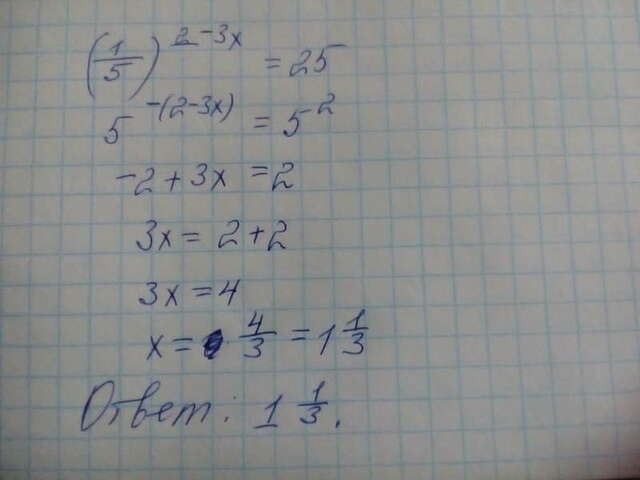 (1/5)^(2-3x) = 25
5^(-(2-3x)) = 5^2
-2 + 3x = 2
3x = 2 + 2
3x = 4
x = 4/3 = 1 1/3
Ответ: 1 1/3.